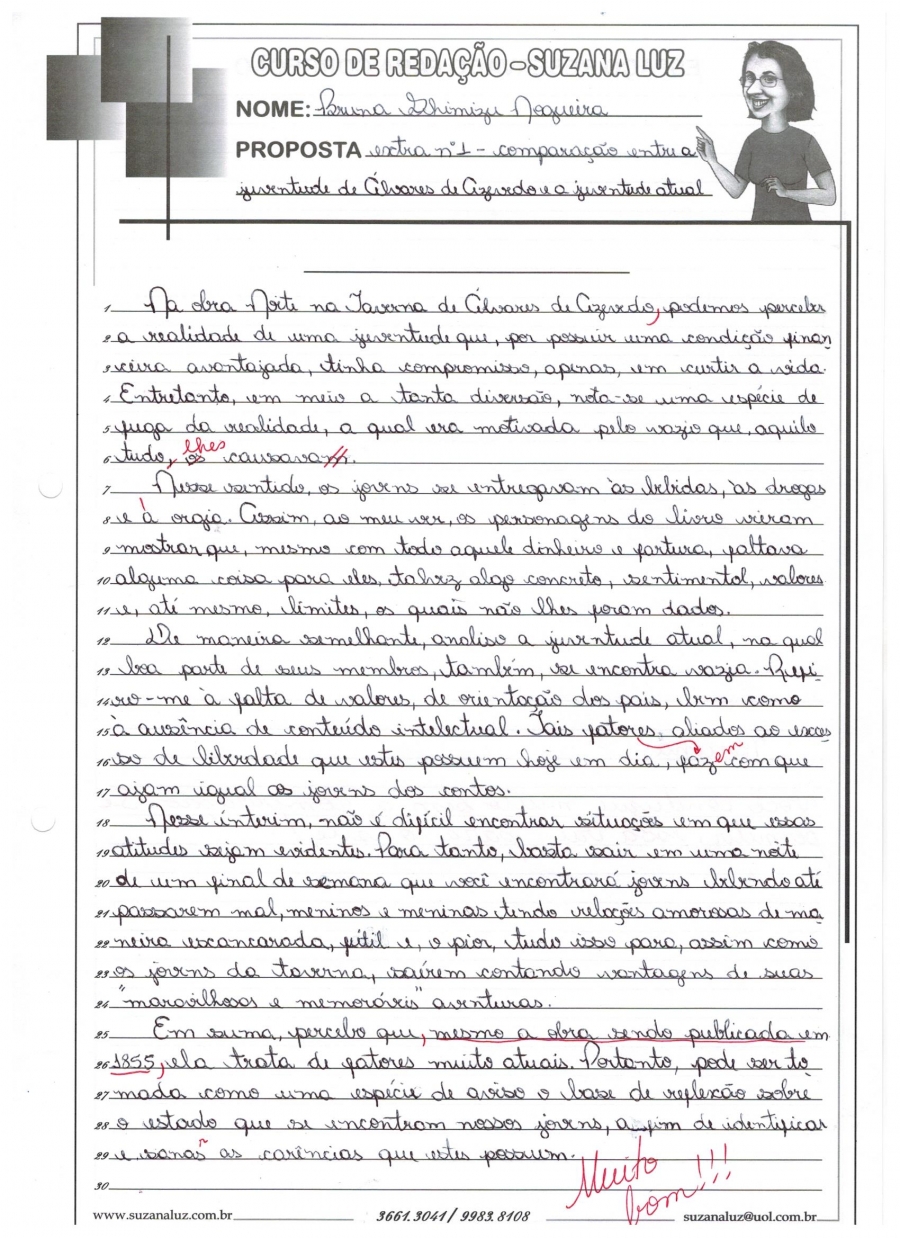 CURSO DE REDAÇÃO - SUZANA LUZ
NOME: Bruna Shimizu Nogueira
PROPOSTA extra nº1 - comparação entre a
juventude de Álvares de Azevedo e a juventude atual
1 Na obra Noite na Taverna de Álvares de Azevedo, podemos perceber
2 a realidade de uma juventude que, por possuir uma condição finan
3 ceira avantajada, tinha compromisso, apenas, em curtir a vida.
4 Entretanto, em meio a tanta diversão, nota-se uma espécie de
5 fuga da realidade, a qual era motivada pelo vazio que, aquilo
lhes
6 tudo, os causavam.
7 Nesse sentido, os jovens se entregavam às bebidas, às drogas
8 e à orgia. Assim, ao meu ver, os personagens do livro vieram
9 mostrar que, mesmo com todo aquele dinheiro e fartura, faltava
10 alguma coisa para eles, talvez algo concreto, sentimental, valores
11 e, até mesmo, limites, os quais não lhes foram dados.
12 De maneira semelhante, analiso a juventude atual, na qual
13 boa parte de seus membros, também, se encontra vazia. Refi
14 ro-me à falta de valores, de orientação dos pais, bem como
15 à ausência de conteúdo intelectual. Tais fatores, aliados ao exces
em
16 so de liberdade que estes possuem hoje em dia, faz com que
17 ajam igual aos jovens dos contos.
18 Nesse ínterim, não é difícil encontrar situações em que essas
19 atitudes sejam evidentes. Para tanto, basta sair em uma noite
20 de um final de semana que você encontrará jovens bebendo até
21 passarem mal, meninos e meninas tendo relações amorosas de ma
22 neira escancarada, fútil e, o pior, tudo isso para, assim como
23 os jovens da taverna, saírem contando vantagens de suas
24 "maravilhosas e memoráveis" aventuras.
25 Em suma, percebo que, mesmo a obra sendo publicada em
26 1855, ela trata de fatores muito atuais. Portanto, pode ser to
27 mada como uma espécie de aviso o base de reflexão sobre
28 o estado que se encontram nossos jovens, a fim de identificar
29 e sanar as carências que estes possuem.
Muito
bom!!!
30
www.suzanaluz.com.br 3661.3041 / 9983.8108 suzanaluz@uol.com.br